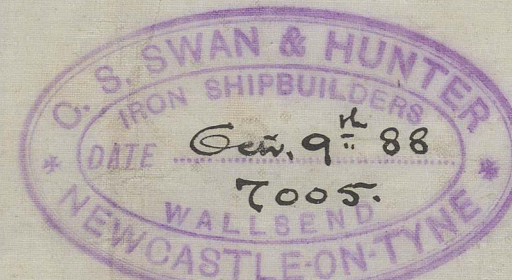 C. S. SWAN & HUNTER
IRON SHIPBUILDERS
DATE 9th 88
7005.
WALLSEND
NEWCASTLE-ON-TYNE